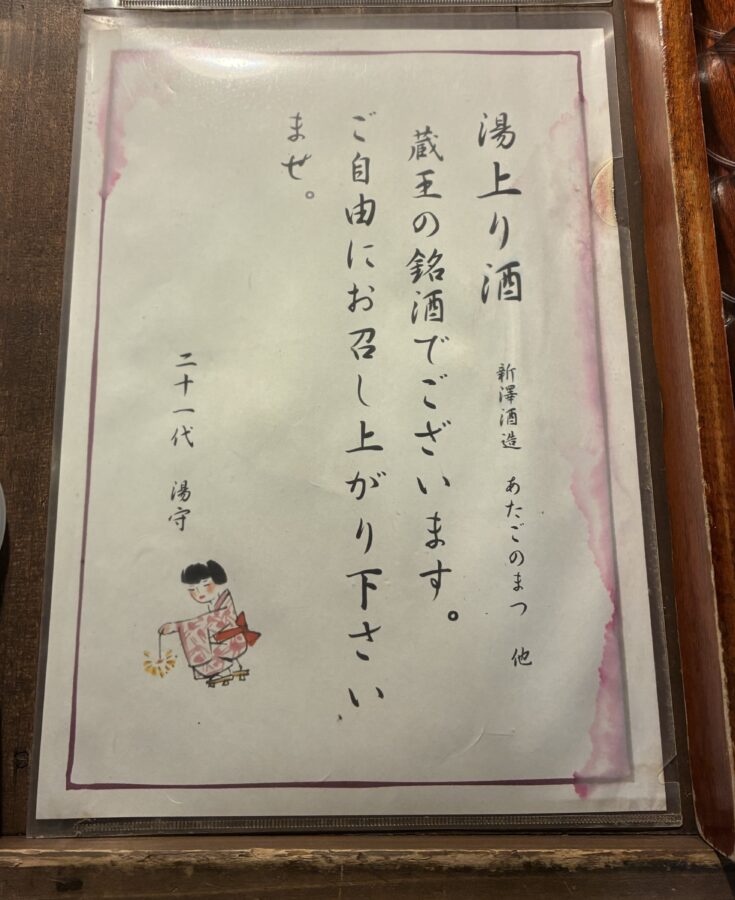 湯上り酒 新澤酒造 あたごのまつ 他
蔵王の銘酒でございます。
ご自由にお召し上がり下さい
ませ。
二十一代 湯守